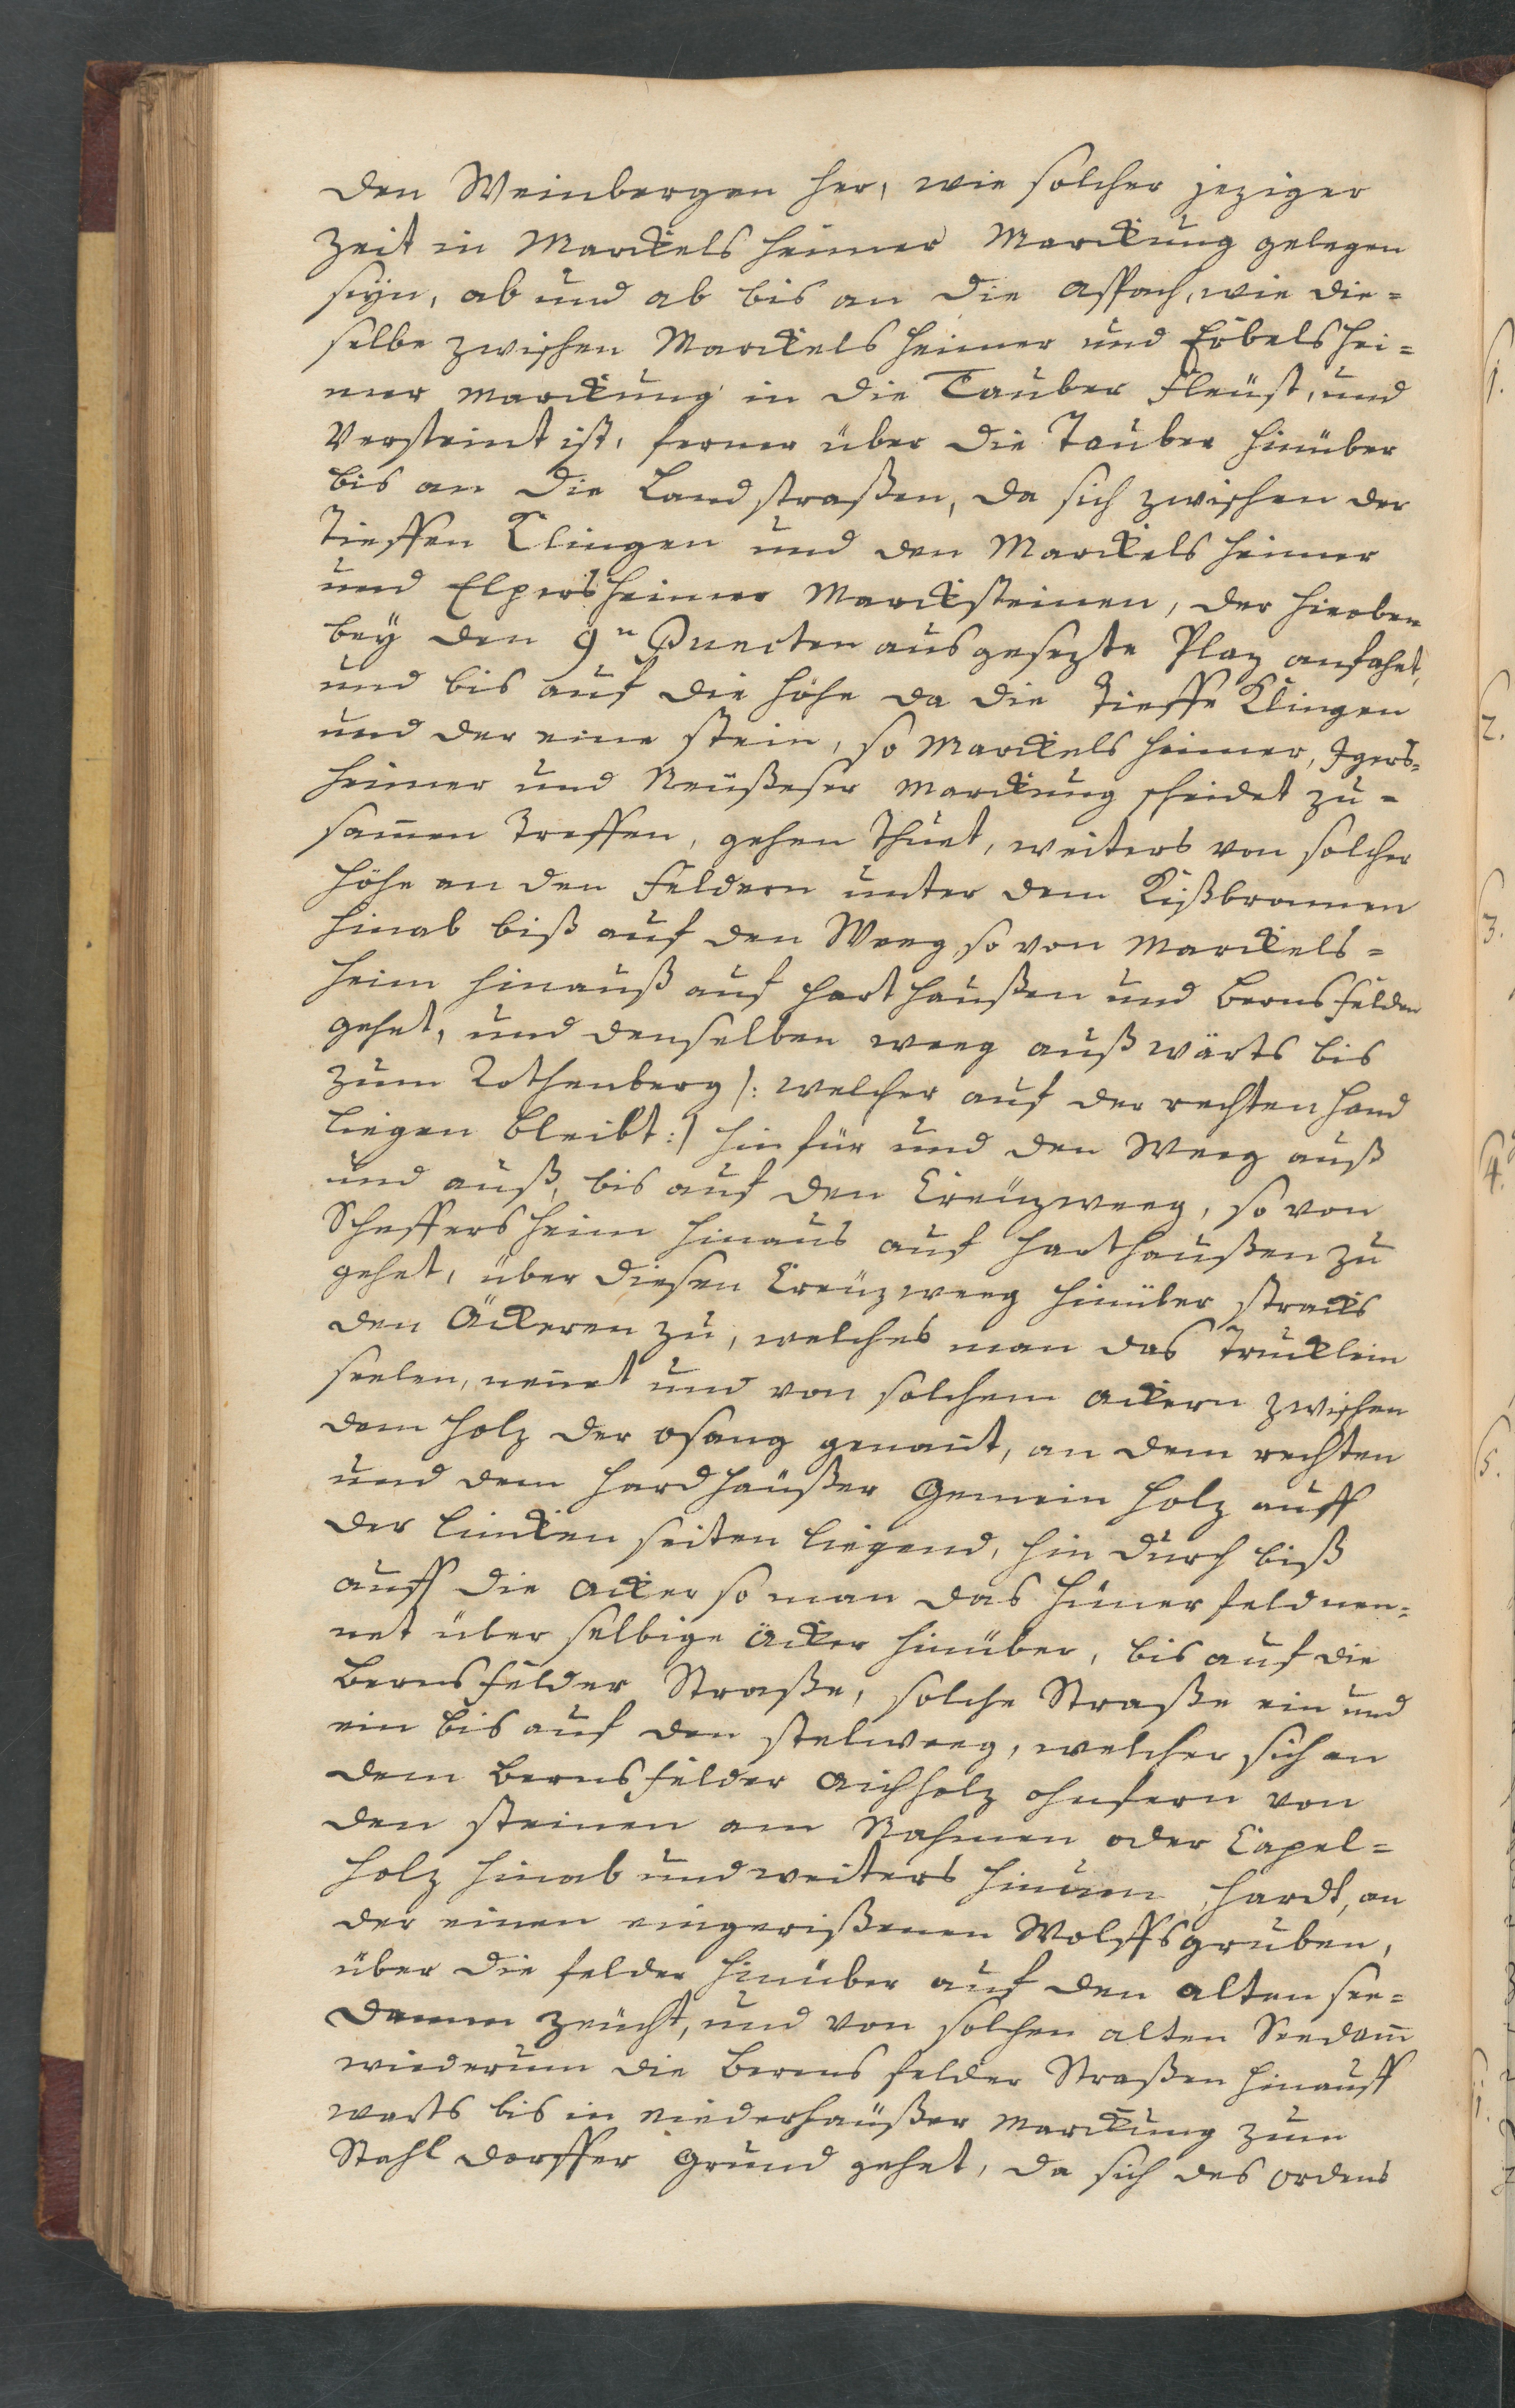 den Weinbergen her, wie solcher jeziger
Zeit in Marckelsheimer Marckung gelegen
seyn, ab und ab bis an die Asspach, wie die=
selbe zwischen Marckelsheimer und Eöbelshei=
mer Marckung in die Tauber fleüst, und
Versteint ist, ferner über die Tauber hinüber
bis an die Landstraßen, da sich zwischen der
Tieffen Klingen und den Marckelsheimer
und Elpersheimer Marcksteinen, der hieoben
bey den 9n Puncten ausgesezte Plaz anfahet,
und bis auf die Höhe da die Tieffe Klingen
und der eine stein, so Marckelsheimer, Igers=
heimer und Neüßeser Marckung scheidet zu=
sam̄en Treffen, gehen Thuet, weiters von solcher
Höhe an den Feldern unter dem Kißbronnen
hinab biß auf den Weeg so von Marckels=
heim hinauß auf Harthaußen und Bernsfelden
gehet, und denselben weeg außwärts bis
zum Rothenberg /: welcher auf der rechten Hand
liegen bleibt :/ hinfür und den Weeg auß
und auß, bis auf den Creüzweeg, so von
Scheffersheim hinaus auf Harthaußen zu
gehet, über diesen Creüzweeg hinüber stracks
den Äckeren zu, welches man das Trucklein
seelen, nen̄et und von solchem Ackern zwischen
dem Holz der Osang genan̄t, an dem rechten
und dem Hardhäußer Gemein Holz auff
der lincken seiten liegend, hin durch biß
auff die Acker so man das Hüner feld nen=
net über selbige Äcker hinüber, bis auf die
Bernsfelder Straße, solche Straße ein und
ein bis auf den stelweeg, welcher sich an
dem Bernsfelder Aichholz ohnfern von
den steinen am Rahmen oder Capel=
holz hinab und weiters hinum Hardt, an
der einen eingerißenen Wolffsgruben,
über die felder hinüber auf den alten see=
damm zeücht, und von solchen alten Seedam̄
wiederum die Berens felder Straßen hinauff
warts bis in Niederhäußer Marckung zum
Stahldorffer Grund gehet, da sich des Ordens